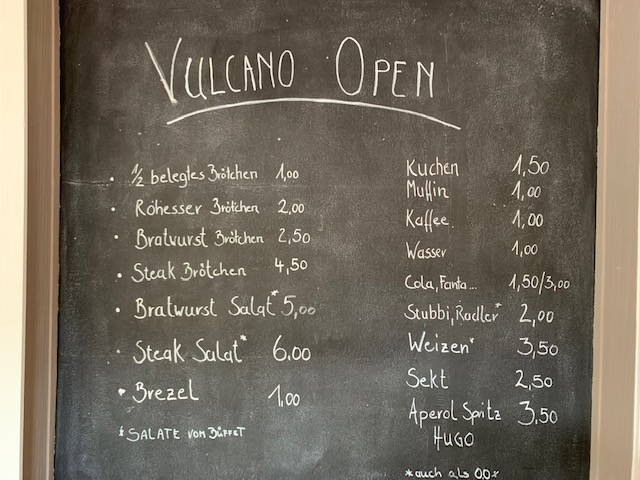 VULCANO OPEN
• 1/2 belegtes Brötchen 1,00
• Röhesser Brötchen 2,00
• Bratwurst Brötchen 2,50
• Steak Brötchen 4,50
• Bratwurst Salat* 5,00
• Steak Salat* 6.00
• Brezel 1,00
* SALATE VOM BÜFFET
Kuchen 1,50
Muffin 1,00
Kaffee 1,00
Wasser 1,00
Cola, Fanta... 1,50/3,00
Stubbi, Radler* 2,00
Weizen* 3,50
Sekt 2,50
Aperol Spritz 3,50
HUGO
*auch als 0,0%